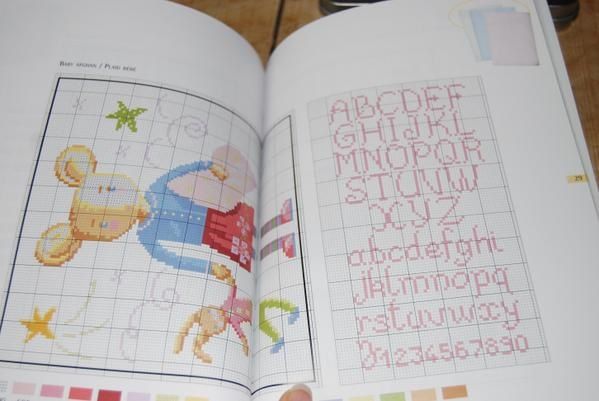 Baby afghan / Plaid bébé
ABCDEF
GHIJKL
MNOPQR
STUVW
XYZ
abcdefghi
jklmnopq
rstuvwxy
z1234567890
29